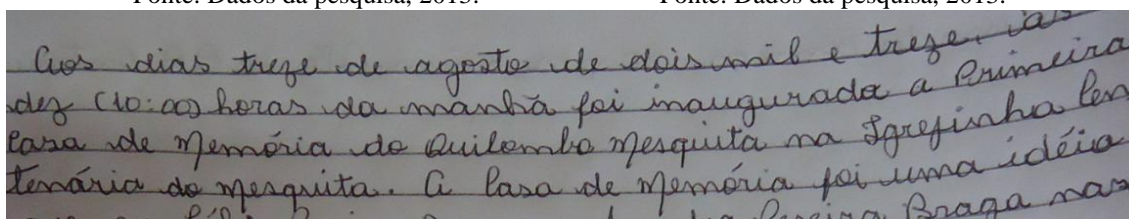 Fonte: Dados da pesquisa, 2013. Fonte: Dados da pesquisa, 2013.
Aos dias treze de agosto de dois mil e treze, as
dez (10:00) horas da manhã foi inaugurada a Primeira
Casa de Memória do Quilombo Mesquita na Igrejinha Cen
tenária do Mesquita. A Casa de Memória foi uma idéia
Pereira Braga nas